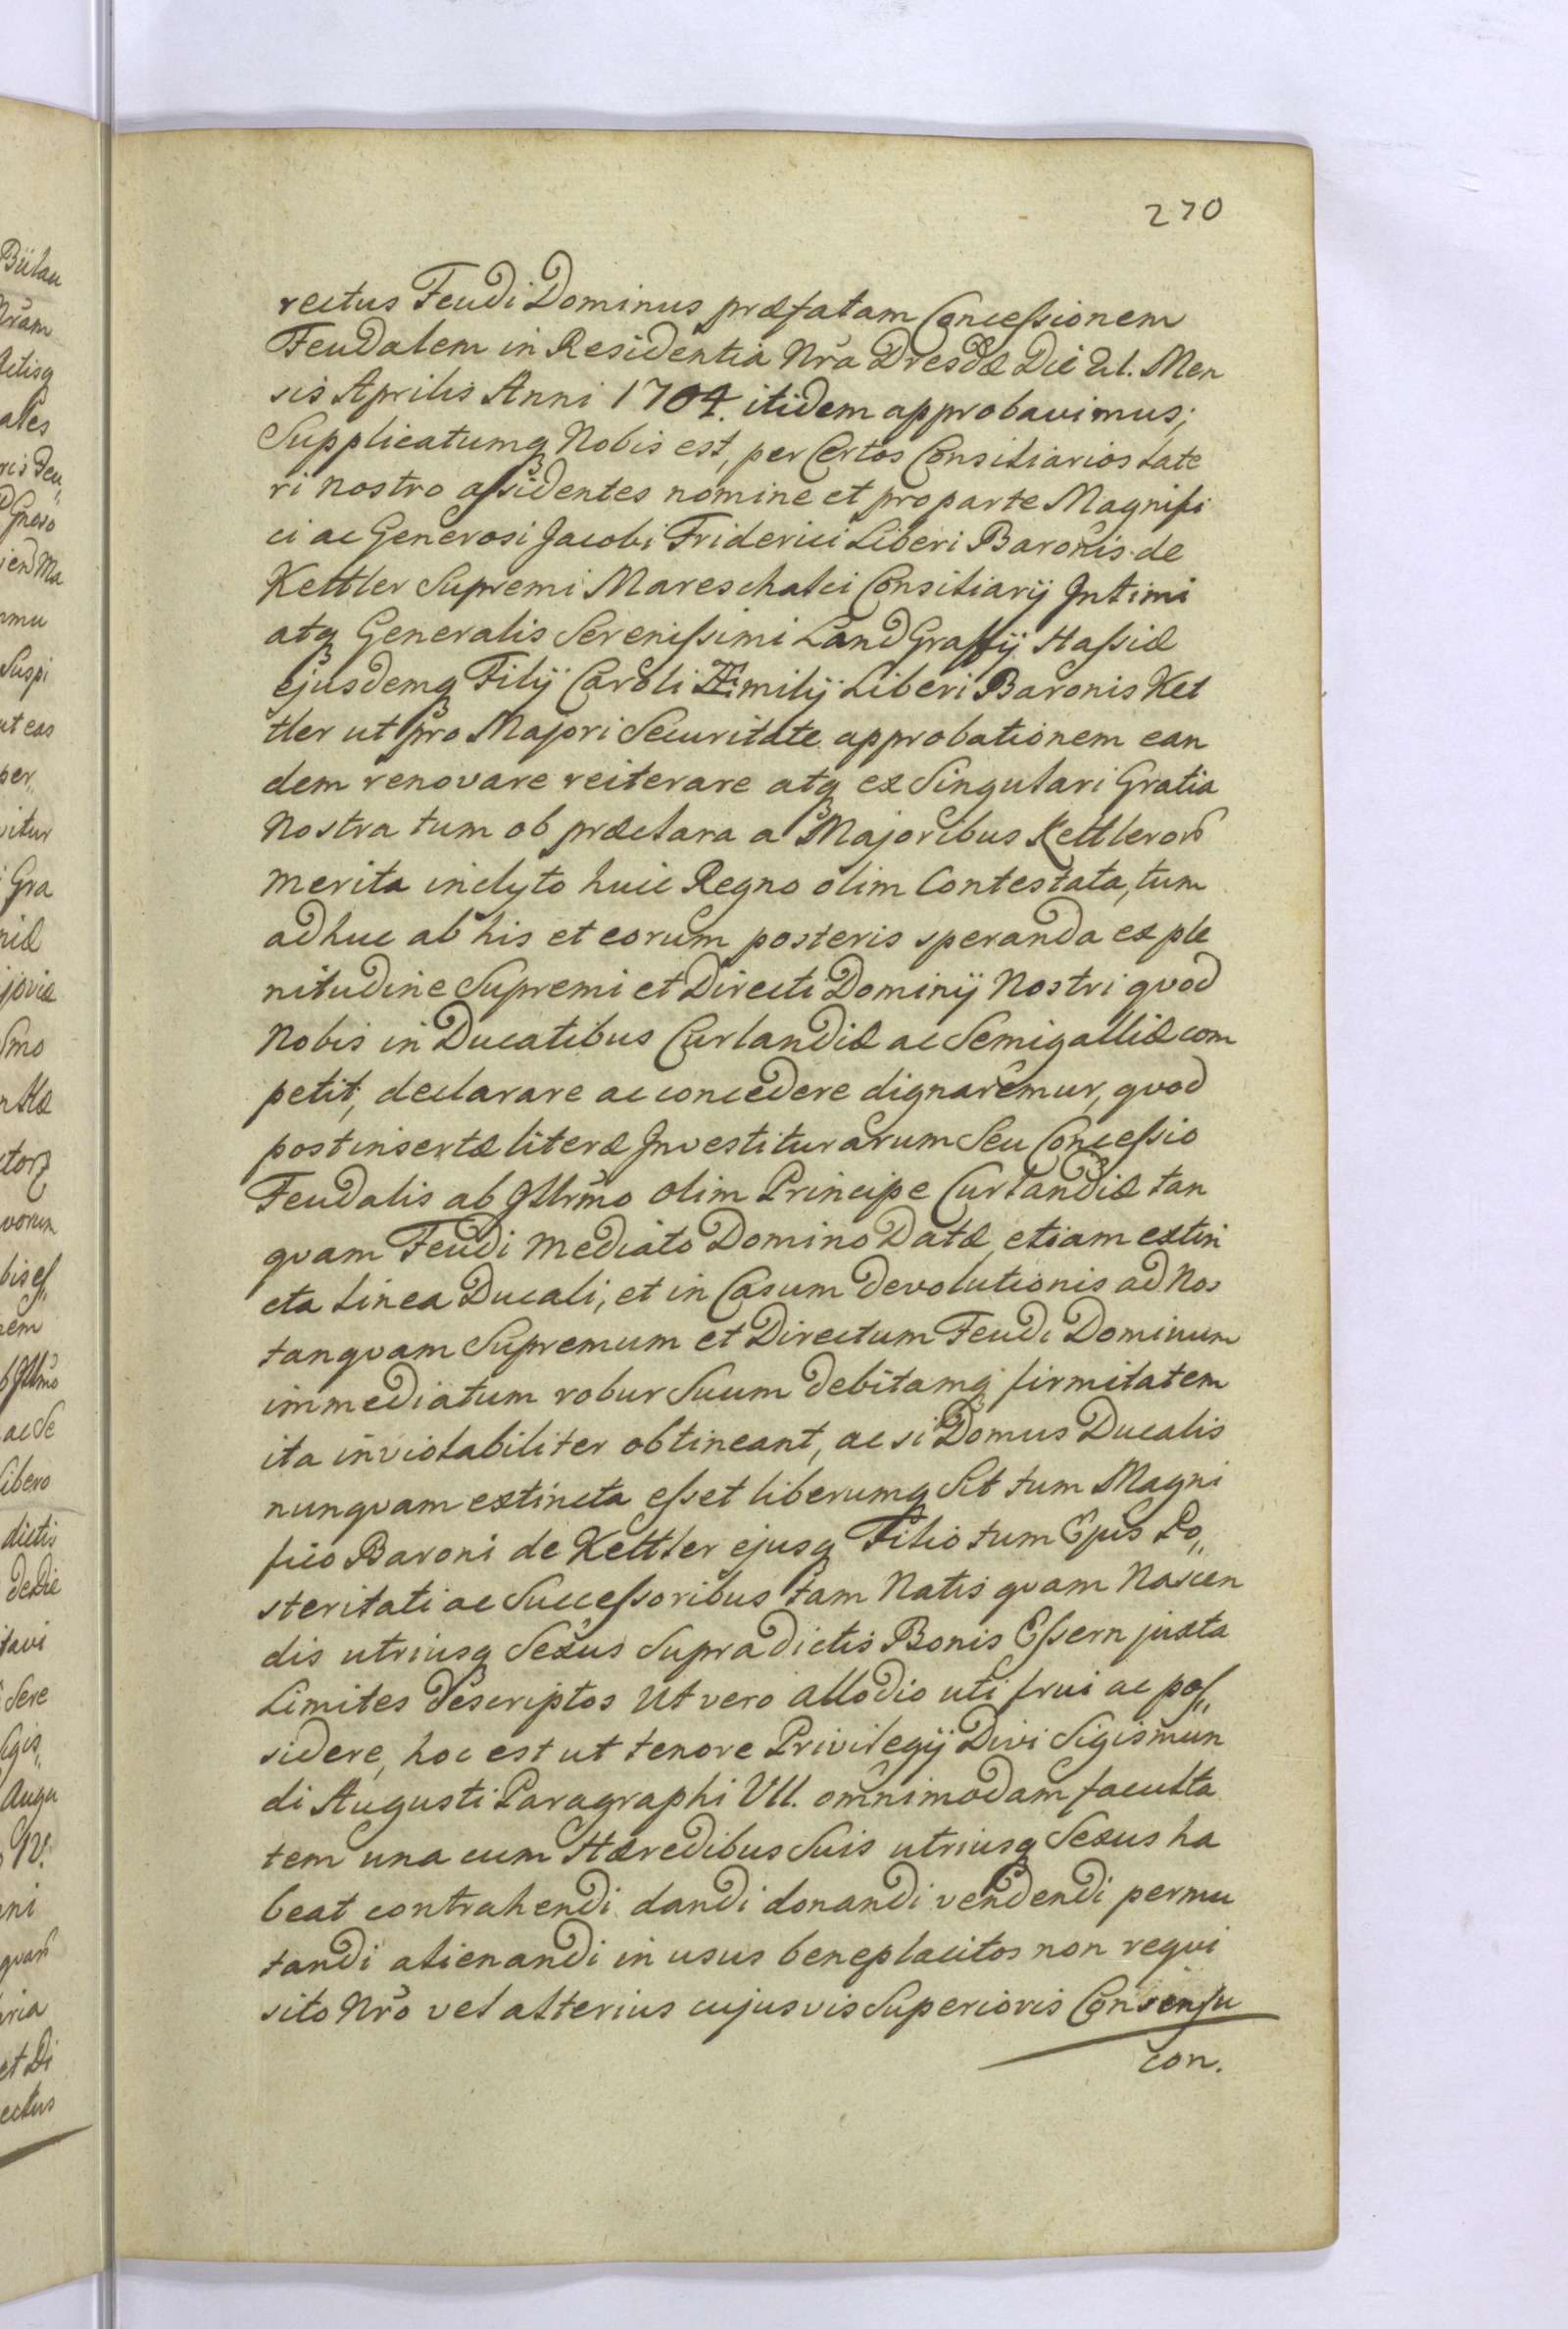 270
rectus Feudi Dominus præfatam Concessionem
Feudalem in Residentia Nr̃a Dresdæ Die 21. Men
sis Aprilis Anni 1704. itidem approbavimus;
Supplicatumq Nobis est, per Certos Consiliarios late
ri nostro assidentes nomine et pro parte Magnifi
ci ac Generosi Jacobi Friderici Liberi Baronis de
Kettler Supremi Mareschalci Consiliarij Intimi
atq Generalis Serenissimi LandGraffij Hassiæ
ejusdemq Filij Caroli Æmilij Liberi Baronis Ket
tler ut pro Majori Securitate approbationem ean
dem renovare reiterare atq ex Singulari Gratia
Nostra tum ob præclara a Majoribus Kettleror̃
merita inclyto huic Regno olim Contestata, tum
adhuc ab his et eorum posteris speranda ex ple
nitudine Supremi et Directi Dominij Nostri qvod
Nobis in Ducatibus Curlandiæ ac Semigalliæ com
petit, declarare ac concedere dignaremur, qvod
postinsertæ literæ Investiturarum Seu Concessio
Feudalis ab Illr̃mo olim Principe Curlandiæ tan
qvam Feudi mediato Domino Datæ, etiam extin
cta Linea Ducali, et in Casum devolutionis ad Nos
tanqvam Supremum et Directum Feudi Dominum
immediatum robur Suum debitamq firmitatem
ita inviolabiliter obtineant, ac si Domus Ducalis
nunqvam extincta esset liberumq Sit tum Magni
fico Baroni de Kettler ejusq Filio tum Ejus Po„
steritati ac Successoribus tam Natis qvam Nascen
dis utriusq Sexus Supradictis Bonis Essern juxta
Limites descriptos Ut vero allodio uti frui ac pos„
sidere, hoc est ut tenore Privilegij Divi Sigismun
di Augusti Paragraphi VII. omnimodam faculta
tem una cum Hæredibus Suis utriusq Sexus ha
beat contrahendi dandi donandi vendendi permu
tandi alienandi in usus beneplacitos non reqvi
sito Nr̃o vel alterius cujusvis Superioris Consensu
con.